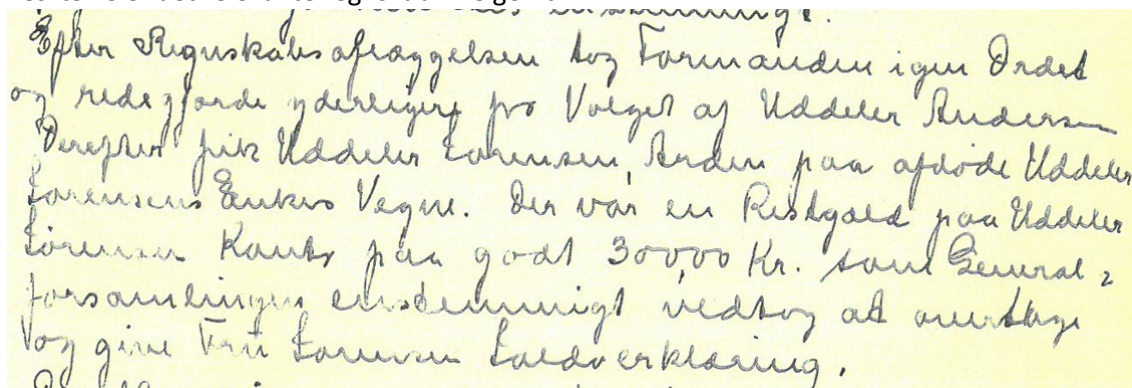 enstemmigt.
Efter Regnskabsaflæggelsen tog Formanden igen Ordet
og redegjorde yderligere for Valget af Uddeler Andersen
Derefter fik Uddeler Sørensen, Arden paa afdøde Uddeler
Sørensens Enkes Vegne. Der var en Restgæld paa Uddeler
Sørensen Konto paa godt 3000,00 Kr. som General=
forsamlingen enstemmigt vedtog at overtage
og give Fru Sørensen Saldoerklæring.